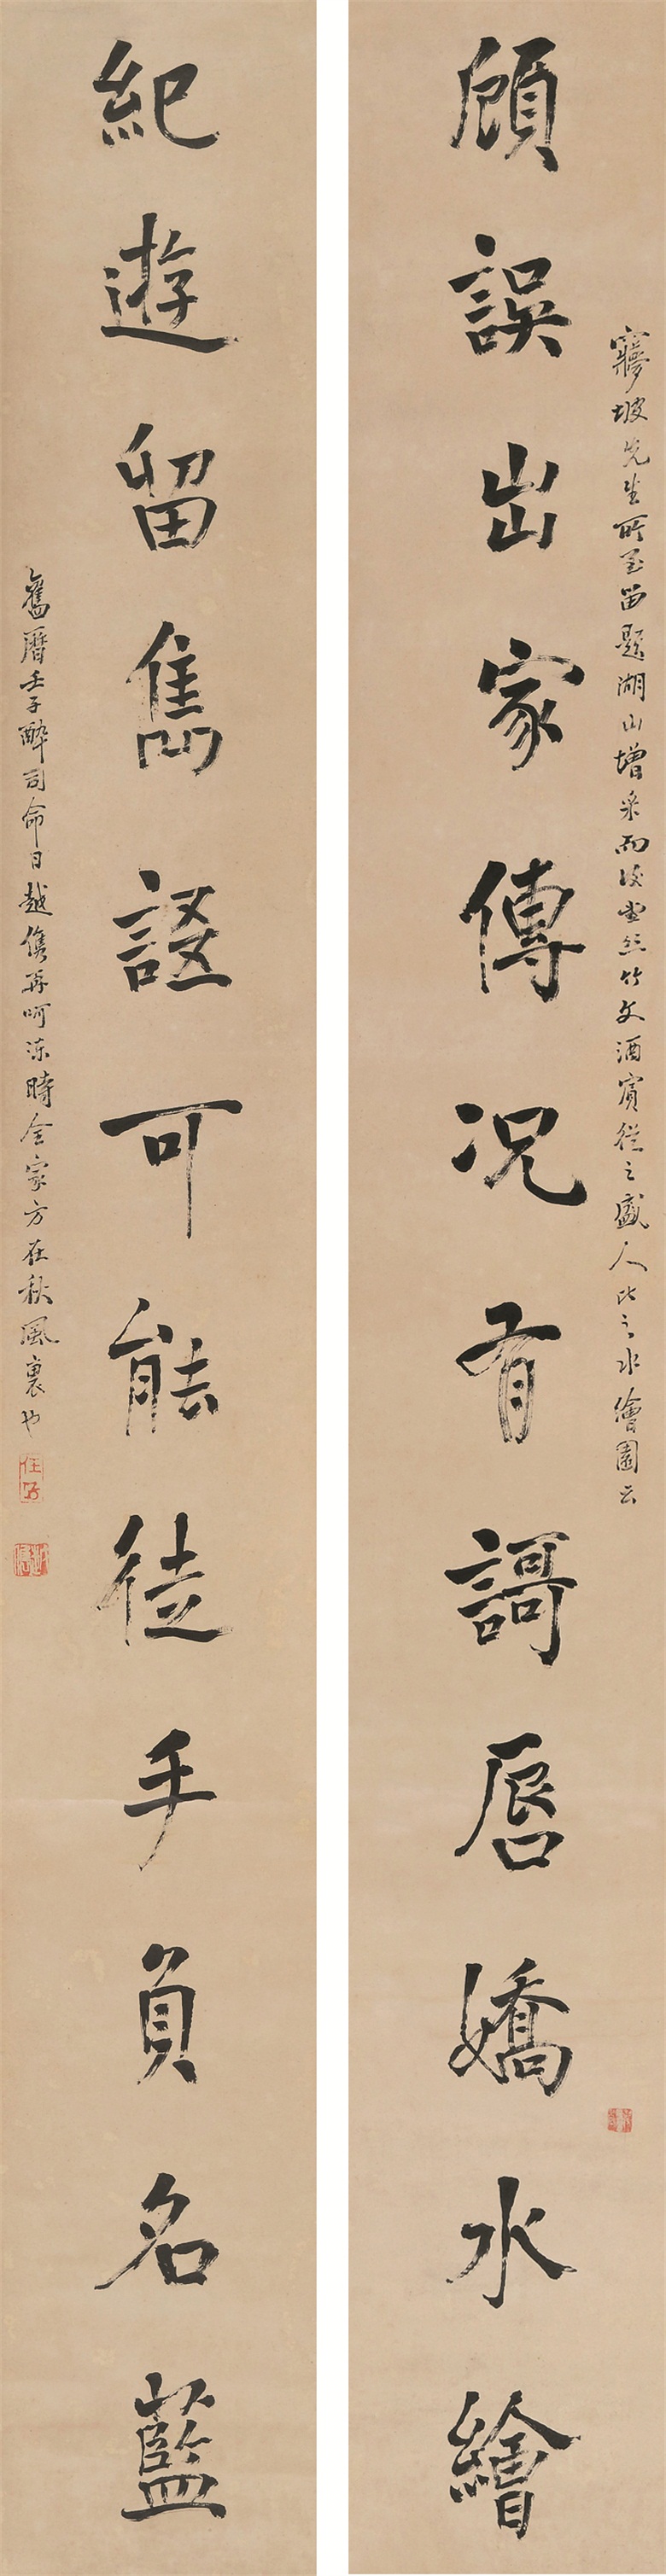 寱坡先生所至留題湖山增采而後堂絲竹文酒賓從之盛人比之水繪園云
頋誤出家傳況有謌唇嬌水繪
紀遊留雋語可能徒手負名藍
舊曆壬子醉司命日越雋再呵凍時全家方在秋風裏也